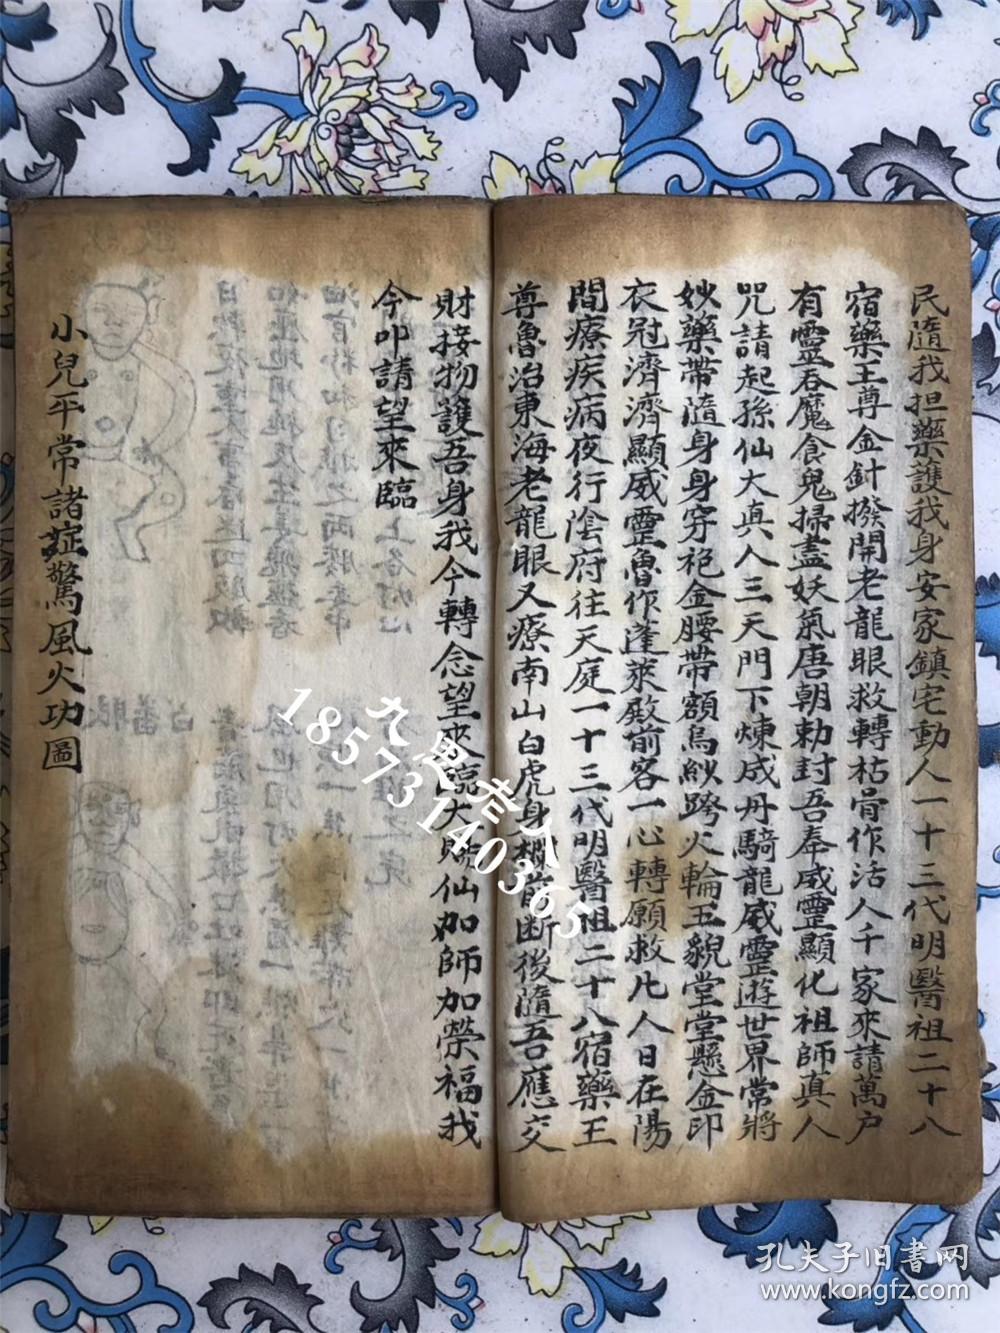 民隨我担藥護我身安家鎮宅動人一十三代明醫祖二十八
宿藥王尊金針撥開老龍眼救轉枯骨作活人千家來請萬户
有靈吞魔食鬼掃盡妖氣唐朝勅封吾奉威靈顯化祖師真人
咒請起孫仙大真人三天門下煉成丹騎龍威靈遊世界常將
妙藥帶隨身身穿袍金腰帶額烏紗跨火輪玉貌堂堂懸金印
衣冠濟濟顯威靈魯作蓬萊殿前客一心轉願救凡人日在陽
間療疾病夜行陰府往天庭一十三代明醫祖二十八宿藥王
尊魯治東海老龍眼又療南山白虎身斷後隨吾應交
財接物護吾身我今轉念望來臨大仙加師加榮福我
今叩請望來臨
小兒平常諸症驚風火功圖
18573140365
孔夫子旧書网
www.kongfz.com